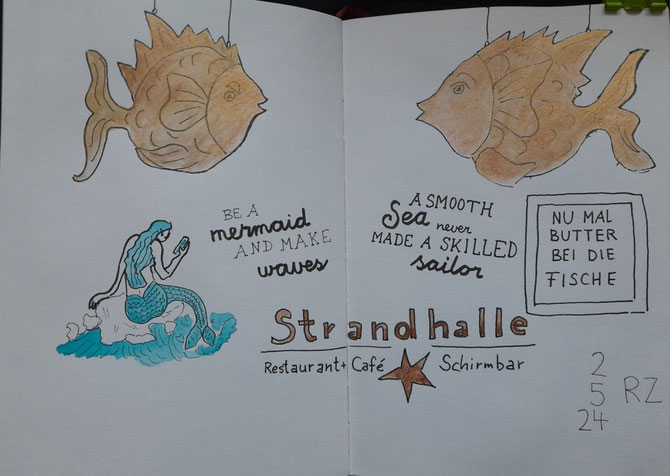 BE A
mermaid
AND MAKE
waves
A SMOOTH
Sea never
MADE A SKILLED
sailor
NU MAL
BUTTER
BEI DIE
FISCHE
Strandhalle
Restaurant + Café Schirmbar
2
5 RZ
24